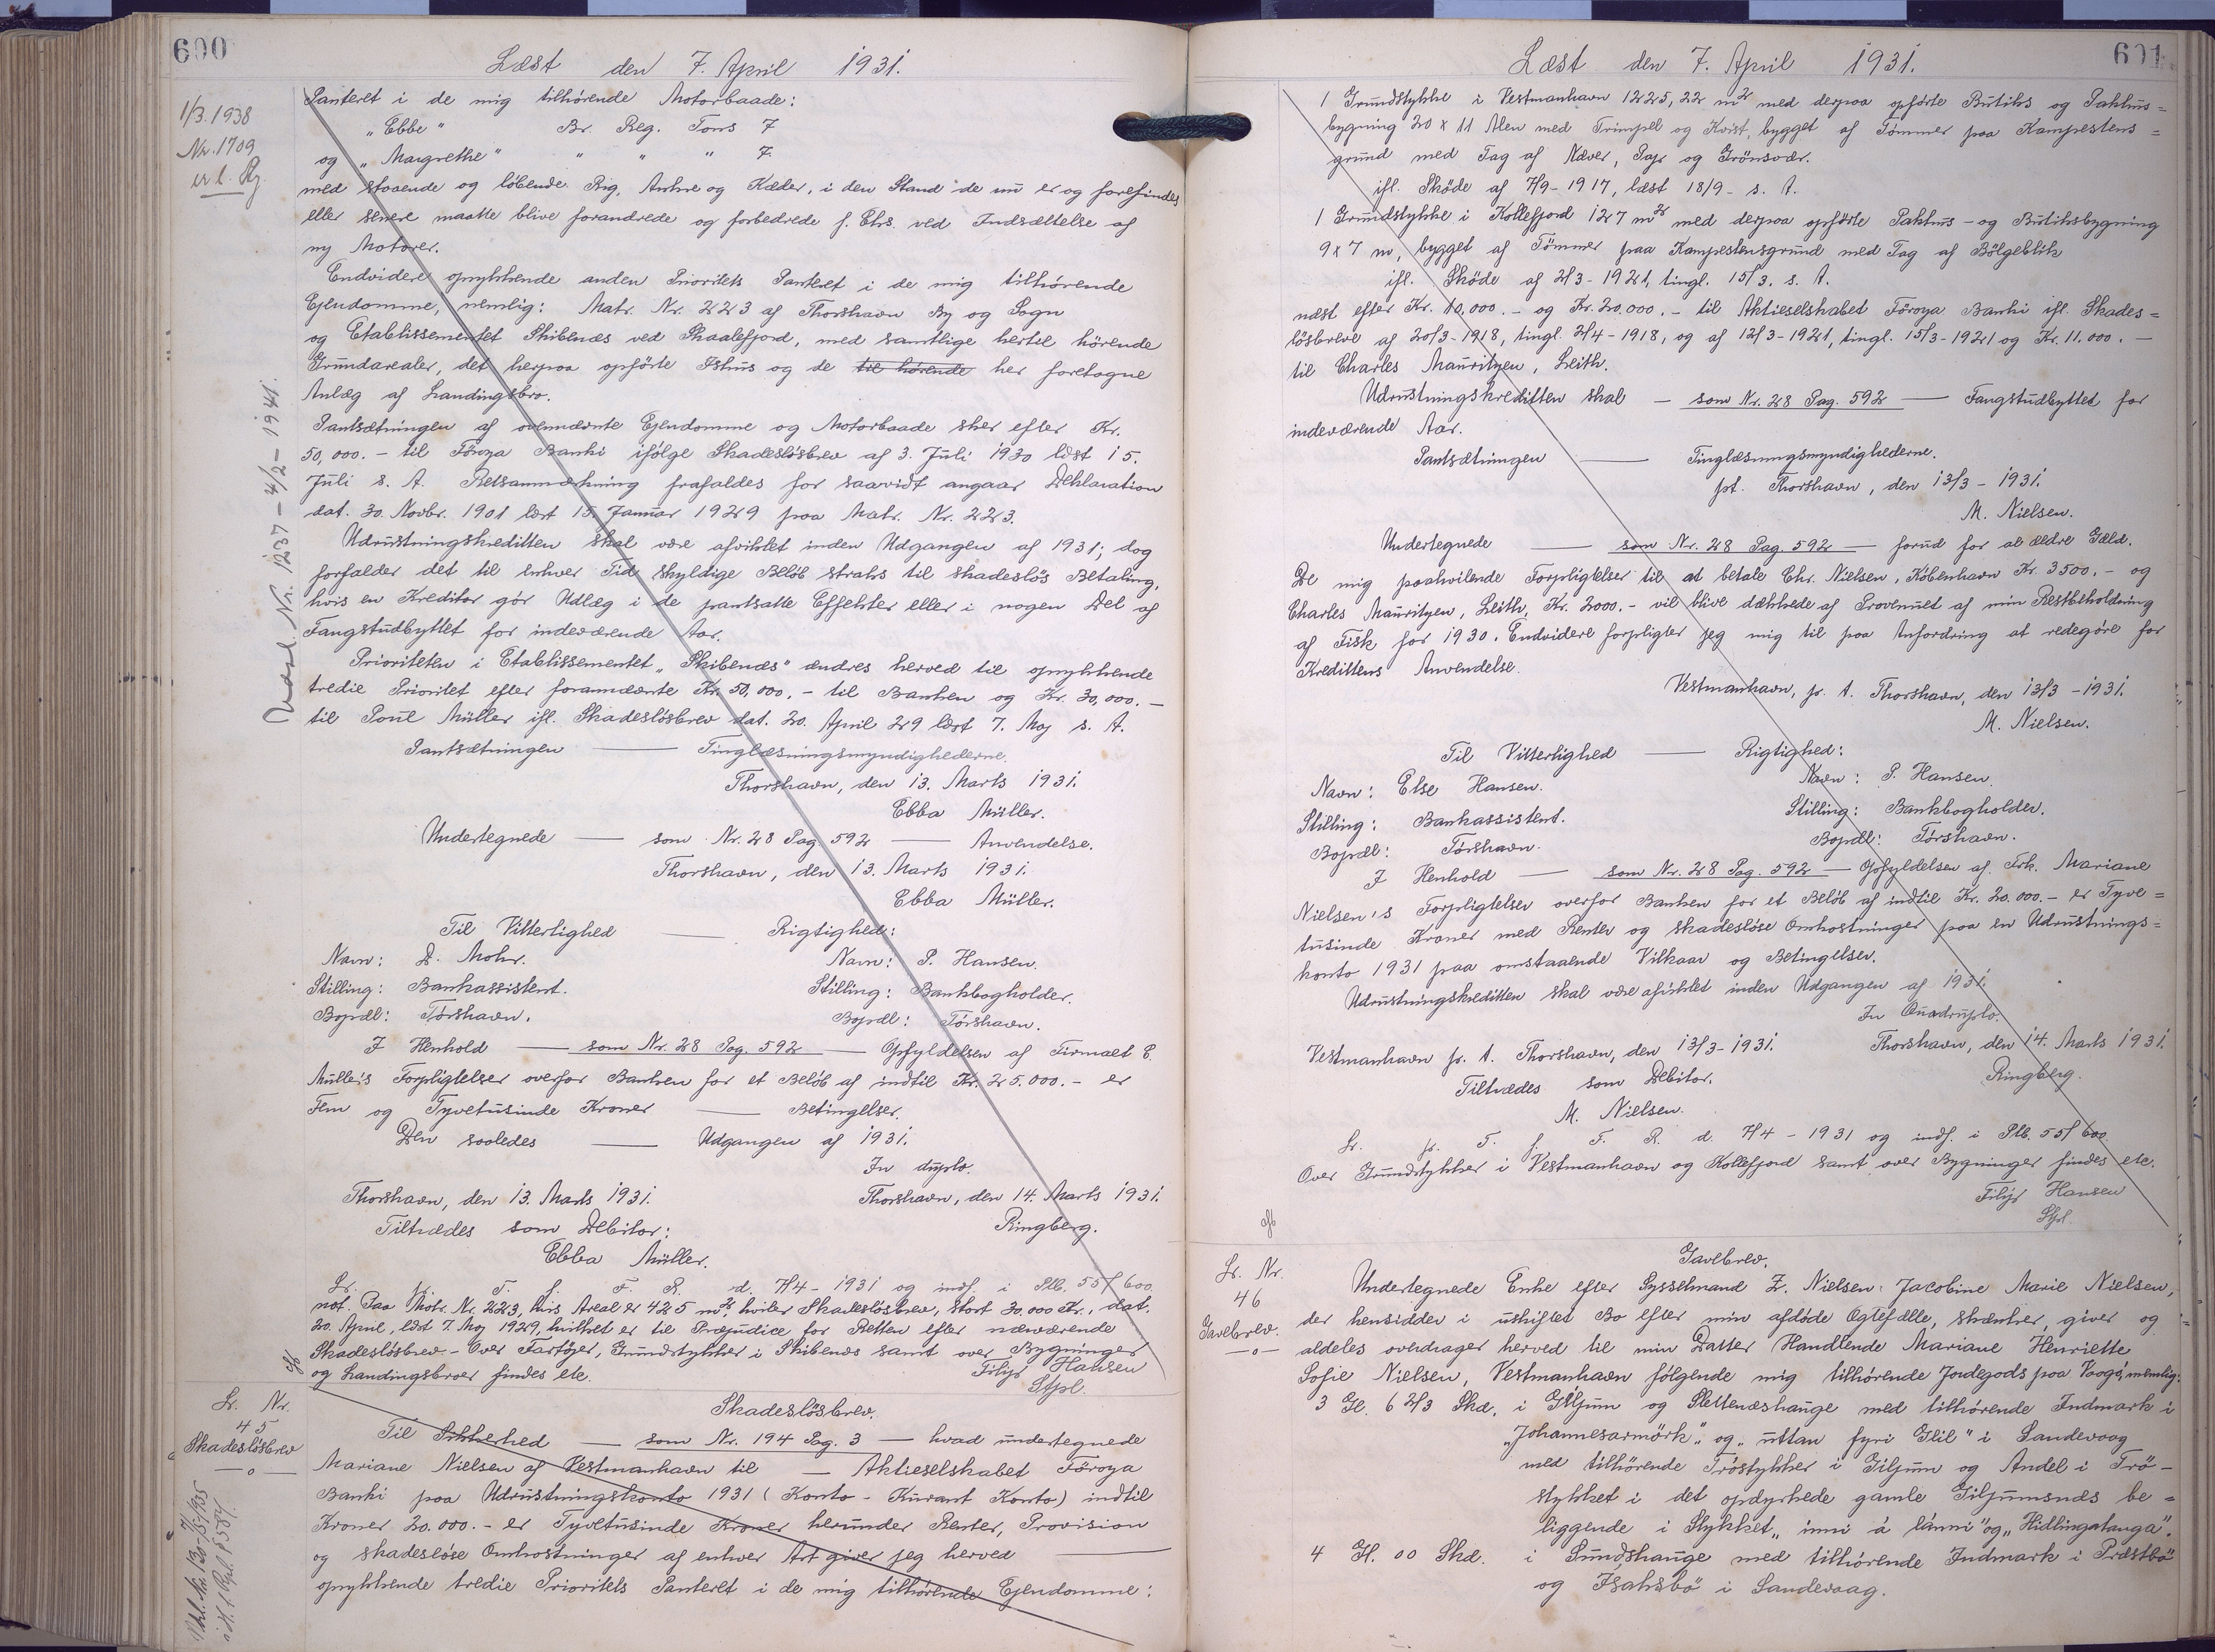 600
Læst den 7. April 1931.
1/3.1938
Nr. 1709
Panteret i de mig tilhørende Motorbaade:
„Ebbe" Br. Reg. Tons 7
og „Margrethe" " " " 7.
med staaende og løbende Rig, Ankre og Kæder, i den Stand de nu er og forefindes
eller senere maatte blive forandrede og forbedrede f. Eks. ved Indsættelse af
ny Motorer.
Endvidere oprykkende anden Prioritets Panteret i de mig tilhørende
Ejendomme, nemlig: Matr. Nr. 223 af Thorshavn By og Sogn
og Etablissementet Skibenæs ved Skaalefjord, med samtlige hertil hørende
Grundarealer, det herpaa opførte Ishus og de til hørende her foretagne
Anlæg af Landingsbro.
Pantsætningen af ovennævnte Ejendomme og Motorbaade sker efter Kr.
50,000.- til Føroya Banki ifølge Skadesløsbrev af 3. Juli 1930 læst 15.
Juli s. A. Retsanmærkning frafaldes for saavidt angaar Deklaration
dat. 30. Novbr. 1901 læst 15. Januar 1929 paa Matr. Nr. 223.
Udrustningskreditten skal være afviklet inden Udgangen af 1931; dog
forfalder det til enhver Tid skyldige Beløb straks til skadesløs Betaling,
hvis en Kreditor gør Udlæg i de pantsatte Effekter eller i nogen Del af
Fangstudbyttet for indeværende Aar.
Prioriteten i Etablissementet „Skibenæs" ændres herved til oprykkende
tredie Prioritet efter forannævnte Kr. 50,000.- til Banken og Kr. 30,000.-
til Poul Müller ifl. Skadesløsbrev dat. 20. April 29 læst 7. Maj s. A.
Pantsætningen — Tinglæsningsmyndighederne.
Thorshavn, den 13. Marts 1931.
Ebba Müller.
Undertegnede — som Nr. 28 Pag. 592 — Anvendelse.
Thorshavn, den 13. Marts 1931.
Ebba Müller.
Til Vitterlighed — Rigtighed:
Navn: D. Mohr. Navn: P. Hansen.
Stilling: Bankassistent. Stilling: Bankbogholder.
Bopæl: Tórshavn. Bopæl: Tórshavn.
I Henhold — som Nr. 28 Pag. 592 — Opfyldelsen af Firmaet E.
Müller's Forpligtelser overfor Banken for et Beløb af indtil Kr. 25.000.- er
Fem og Tyvetusinde Kroner — Betingelser.
Den saaledes — Udgangen af 1931.
In duplo.
Thorshavn, den 13. Marts 1931. Thorshavn, den 14. Marts 1931.
Tiltrædes som Debitor: Ringberg.
Ebba Müller.
Lr. fr. T. f. F. R. d. 7/4-1931 og indf. i Plb. 55/600.
not. Paa Matr. Nr. 223, hvis Areal er 425 m² hviler Skadesløsbrev, stort 30.000 Kr., dat.
20. April, læst 7. Maj 1929, hvilket er til Præjudice for Retten efter nærværende
Skadesløsbrev.- Over Fartøjer, Grundstykker i Skibenæs samt over Bygninger
og Landingsbroer findes etc. Filip Hansen
Stpl.
Nr. 1237 - 4/2 - 1941.
Lr. Nr.
45
Skadesløsbrev
Skadesløsbrev.
Til Sikkerhed — som Nr. 194 Pag. 3 — hvad undertegnede
Mariane Nielsen af Vestmanhavn til — Aktieselskabet Føroya
Banki paa Udrustningskonto 1931 (Konto-Kurant Konto) indtil
Kroner 20.000.- er Tyvetusinde Kroner herunder Renter, Provision
og skadesløse Omkostninger af enhver Art giver jeg herved —
oprykkende tredie Prioritets Panteret i de mig tilhørende Ejendomme:
601
Læst den 7. April 1931.
1 Grundstykke i Vestmanhavn 1225,22 m² med derpaa opførte Butiks og Pakhus=
bygning 20 x 11 Alen med Trimpel og Kvist, bygget af Tømmer paa Kampestens=
grund med Tag af Næver, Pap og Grønsvær.
ifl. Skøde af 7/9-1917, læst 18/9- s. A.
1 Grundstykke i Kollefjord 127 m² med derpaa opførte Pakhus- og Butiksbygning
9 x 7 m, bygget af Tømmer paa Kampestensgrund med Tag af Bølgeblik
ifl. Skøde af 2/3-1921, tingl. 15/3. s. A.
næst efter Kr. 10,000.- og Kr. 20,000.- til Aktieselskabet Føroya Banki ifl. Skades=
løsbreve af 20/3-1918, tingl. 2/4-1918, og af 12/3-1921, tingl. 15/3-1921 og Kr. 11.000.-
til Charles Mauritzen, Leith.
Udrustningskreditten skal — som Nr. 28 Pag. 592 — Fangstudbyttet for
indeværende Aar.
Pantsætningen — Tinglæsningsmyndighederne.
pt. Thorshavn, den 13/3-1931.
M. Nielsen.
Undertegnede — som Nr. 28 Pag. 592 — forud for al ældre Gæld.
De mig paahvilende Forpligtelser til at betale Chr. Nielsen, København Kr. 3500.- og
Charles Mauritzen, Leith, Kr. 2000.- vil blive dækkede af Provenuet af min Restbeholdning
af Fisk for 1930. Endvidere forpligter jeg mig til paa Anfordring at redegøre for
Kredittens Anvendelse.
Vestmanhavn, p. t. Thorshavn, den 13/3-1931.
M. Nielsen.
Til Vitterlighed — Rigtighed:
Navn: Else Hansen. Navn: P. Hansen.
Stilling: Bankassistent. Stilling: Bankbogholder.
Bopæl: Tórshavn. Bopæl: Tórshavn.
I Henhold — som Nr. 28 Pag. 592 — Opfyldelsen af Frk. Mariane
Nielsen's Forpligtelser overfor Banken for et Beløb af indtil Kr. 20.000.- er Tyve=
tusinde Kroner med Renter og skadesløse Omkostninger paa en Udrustnings=
konto 1931 paa omstaaende Vilkaar og Betingelser.
Udrustningskreditten skal være afviklet inden Udgangen af 1931.
In Quadruplo.
Vestmanhavn p. t. Thorshavn, den 13/3-1931. Thorshavn, den 14. Marts 1931.
Tiltrædes som Debitor. Ringberg.
M. Nielsen.
Lr. fr. T. f. F. R. d. 7/4-1931 og indf. i Plb. 55/600.
Over Grundstykker i Vestmanhavn og Kollefjord samt over Bygninger findes etc.
Filip Hansen
Stpl.
Lr. Nr.
46
Gavebrev.
Gavebrev.
Undertegnede Enke efter Sysselmand Z. Nielsen: Jacobine Marie Nielsen,
der hensidder i uskiftet Bo efter min afdøde Ægtefælle, skænker, giver og
aldeles overdrager herved til min Datter Handlende Mariane Henriette
Sofie Nielsen, Vestmanhavn følgende mig tilhørende Jordegods paa Vaagø, nemlig:
3 Gl. 6 2/3 Skd. i Giljum og Slettenæshauge med tilhørende Indmark i
„Johannesarmørk", og „uttan fyri Glil" i Sandevaag
med tilhørende Trøstykker i Giljum og Andel i Trø-
stykket i det opdyrkede gamle Giljumsnæs be=
liggende i Stykket „inni á lánni" og „Hidlingatanga".
4 Gl. 00 Skd. i Sundshauge med tilhørende Indmark i Præstbø
og Isaksbø i Sandevaag.